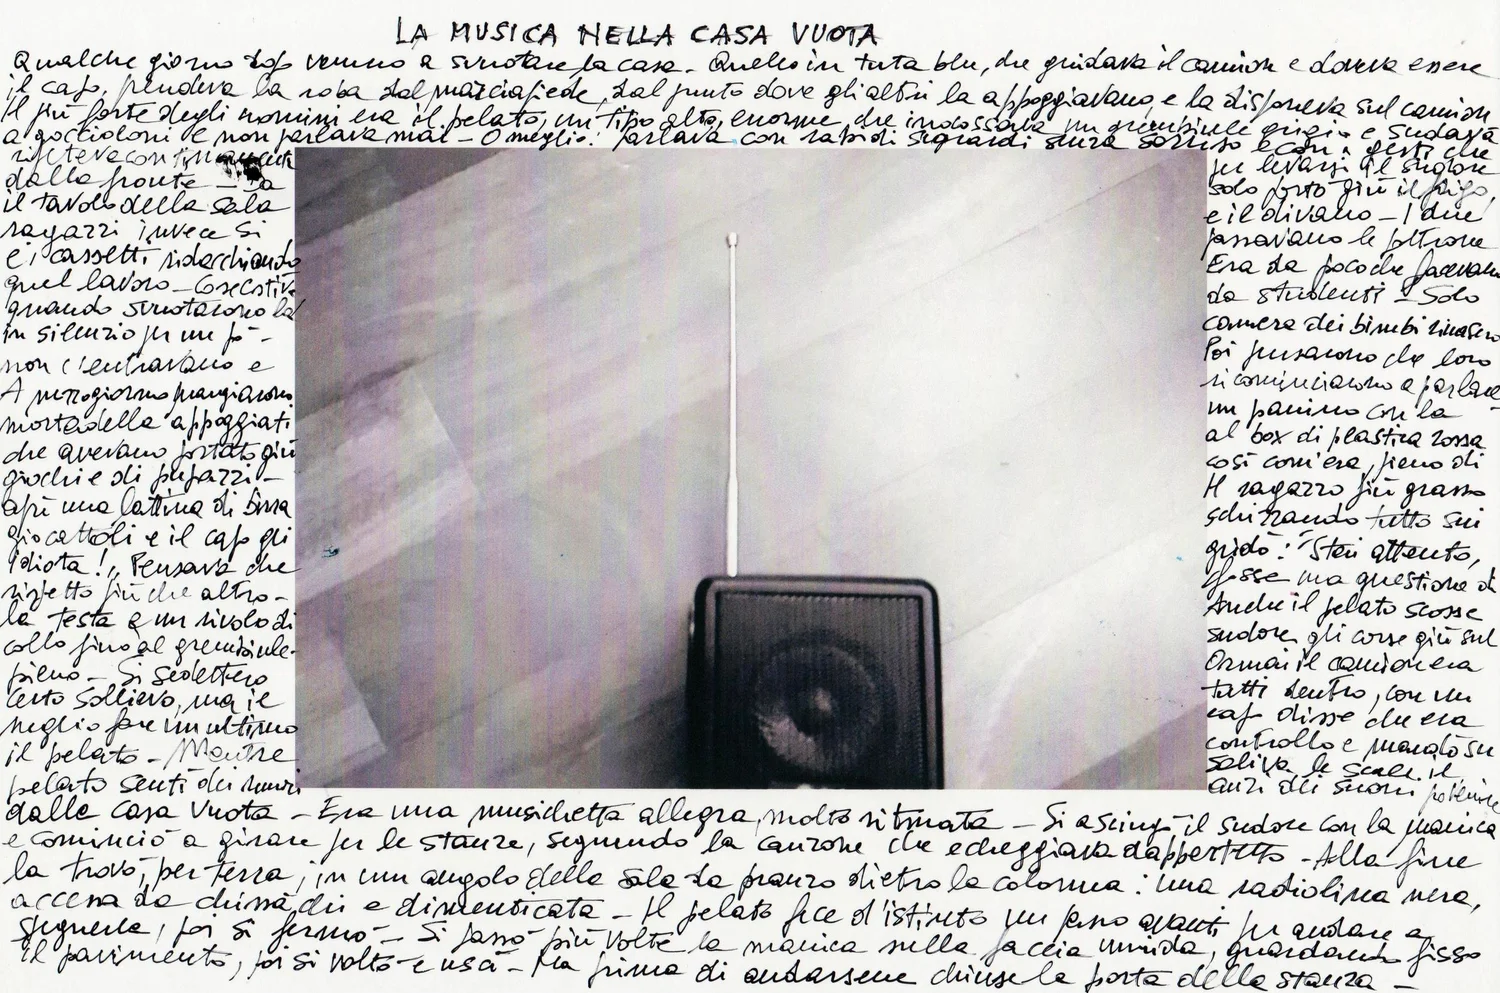 LA MUSICA NELLA CASA VUOTA
Qualche giorno dopo vennero a svuotare la casa – Quello in tuta blu, che guidava il camion e doveva essere
il capo, prendeva la roba dal marciapiede, dal punto dove gli altri la appoggiavano, e la disponeva sul camion
Il più forte degli uomini era il pelato, un tipo alto, enorme, che indossava un grembiule grigio e sudava
a goccioloni e non parlava mai – O meglio: parlava con rapidi sguardi senza sorriso e con i gesti che
ripeteva continuamente per levarsi il sudore
dalla fronte – Da solo portò giù il frigo,
il tavolo della sala e il divano – I due
ragazzi invece si passavano le poltrone
e i cassetti ridacchiando Era da poco che facevano
quel lavoro – da studenti – Solo
quando svuotarono la camera dei bimbi rimasero
in silenzio per un pò – Poi pensarono che loro
non c'entravano e ricominciarono a parlare –
A mezzogiorno mangiarono un panino con la
mortadella appoggiati al box di plastica rossa
che avevano portato giù così com'era, pieno di
giochi e di pupazzi – Il ragazzo più grasso
aprì una lattina di birra schizzando tutto sui
giocattoli e il capo gli gridò: "Stai attento,
idiota!" Pensava che fosse una questione di
rispetto più che altro – Anche il pelato scosse
la testa e un rivolo di sudore gli corse giù sul
collo fino al grembiule – Ormai il camion era
pieno – Si sedettero tutti dentro, con un
certo sollievo, ma il capo disse che era
meglio fare un ultimo controllo e mandò su
il pelato – Mentre saliva le scale il
pelato sentì dei rumori anzi dei suoni provenire
dalla casa vuota – Era una musichetta allegra, molto ritmata – Si asciugò il sudore con la manica
e cominciò a girare per le stanze, seguendo la canzone che echeggiava dappertutto – Alla fine
la trovò, per terra, in un angolo della sala da pranzo dietro la colonna: una radiolina nera,
accesa da chissà chi e dimenticata – Il pelato fece d'istinto un passo avanti per andare a
spegnerla, poi si fermò – Si passò più volte la manica sulla faccia umida, guardando fisso
il pavimento, poi si voltò e uscì – Ma prima di andarsene chiuse la porta della stanza –